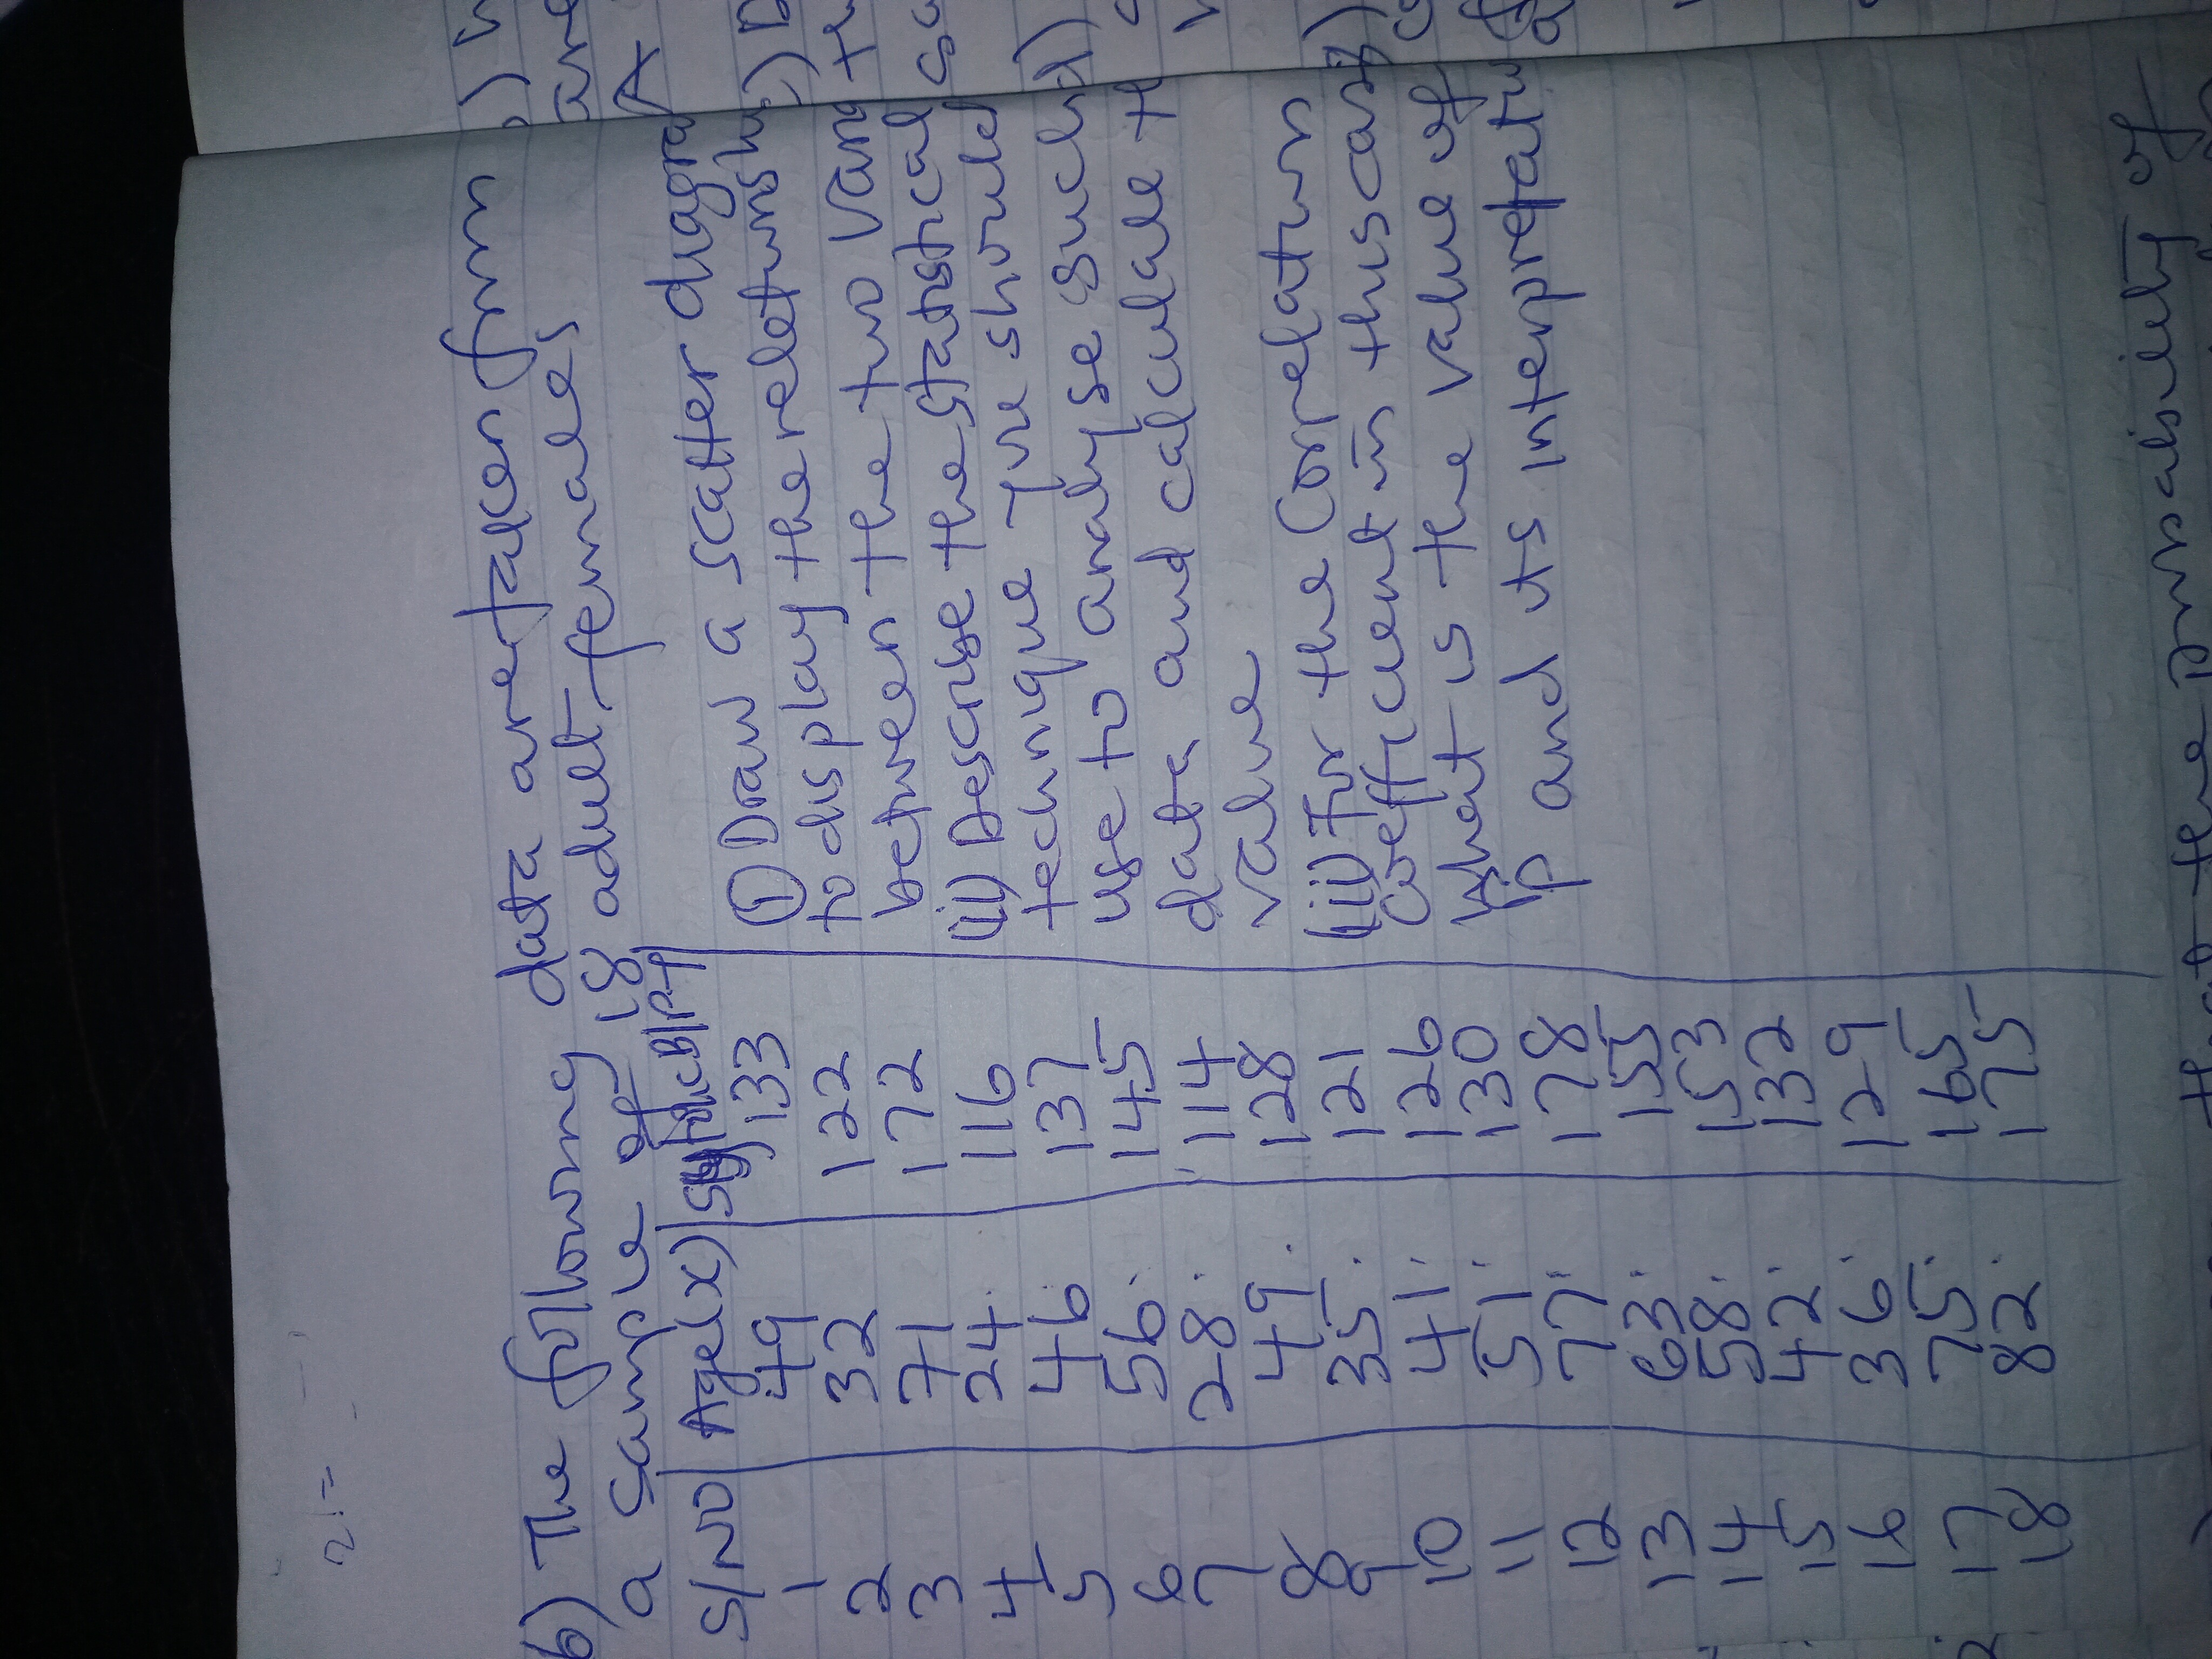 b) The following data are taken from
a sample of 18 adult females
S/NO | Age(x) | Systolic B/P Y
1 49 133
2 32 122
3 71 172
4 24 116
5 46 137
6 56 145
7 28 114
8 49 128
9 35 121
10 41 126
11 51 130
12 77 178
13 63 155
14 58 153
15 42 132
16 36 129
17 75 165
18 82 175
(i) Draw a scatter diagra
to display the relationship
between the two vari
(ii) Describe the statistical
technique you should
use to analyse such
data and calculate th
value
(iii) For the Correlation
Coefficient in this case
What is the value of
p and its interpretati
that the probability of